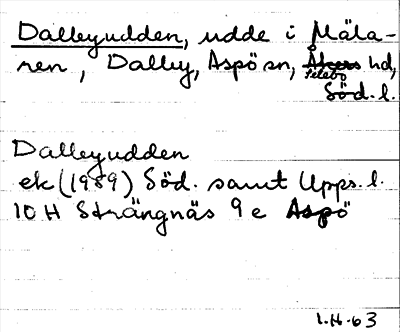 Dalbyudden, udde i Mäla-
ren, Dalby, Aspö sn, Åkers hd,
Selebo
Söd. l.
Dalbyudden
ek (1989) Söd. samt Upps. l.
10 H Strängnäs 9 e Aspö
1.H.63